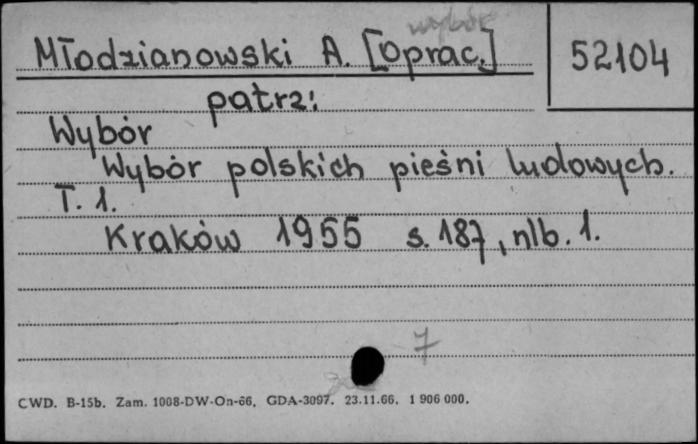 wybór
Młodzianowski A. [Oprac.]
52104
patrz:
Wybór
Wybór polskich pieśni ludowych.
T. 1.
Kraków 1955 s. 187, nlb. 1.
7
CWD. B-15b. Zam. 1008-DW-On-66. GDA-3097. 23.11.66. 1 906 000.